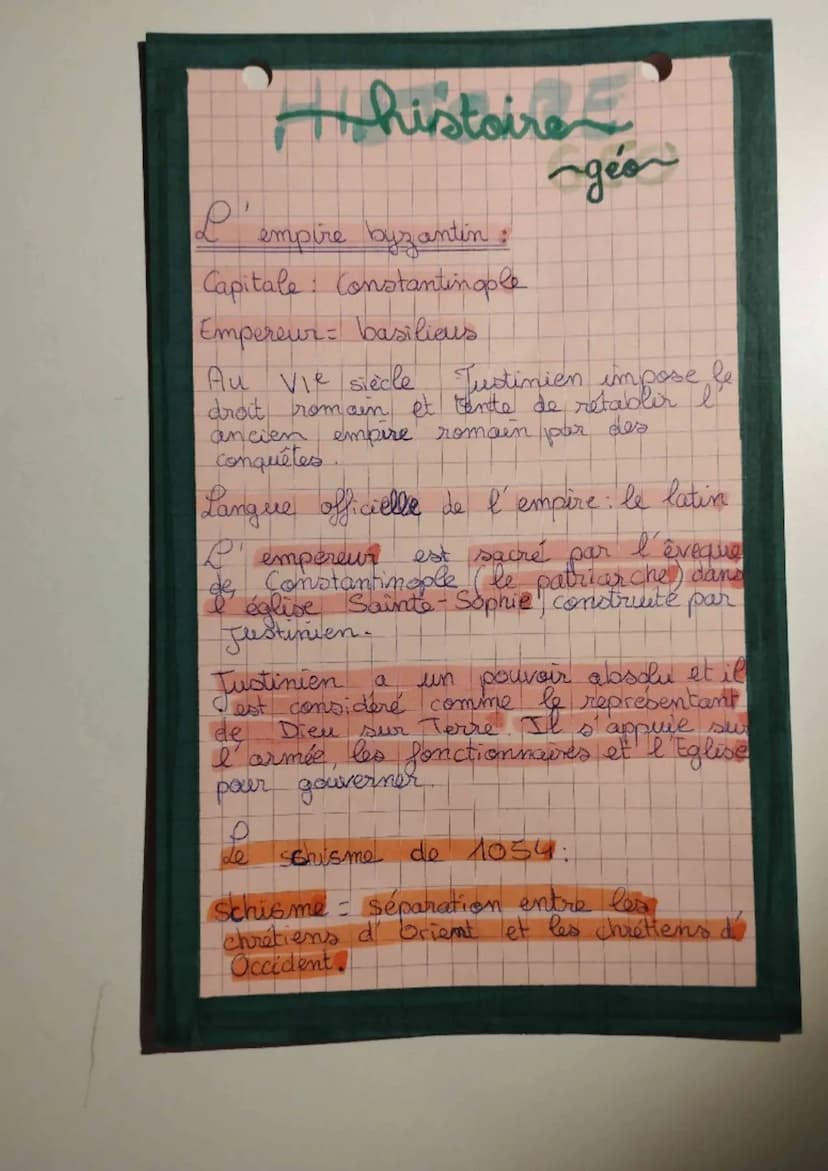 HISTOIRE
histoire
GEO
géo
L'empire byzantin :
Capitale : Constantinople
Empereur = basilieus
Au VIe siècle Justinien impose le
droit romain et tente de rétablir l'
ancien empire romain par des
conquêtes.
Langue officielle de l'empire : le latin
L'empereur est sacré par l'évêque
de Constantinople (le patriarche) dans
l'église Sainte-Sophie, construite par
Justinien.
Justinien a un pouvoir absolu et il
est considéré comme le représentant
de Dieu sur Terre. Il s'appuie sur
l'armée, les fonctionnaires et l'Eglise
pour gouverner.
Le schisme de 1054 :
Schisme = séparation entre les
chrétiens d'Orient et les chrétiens d'
Occident.